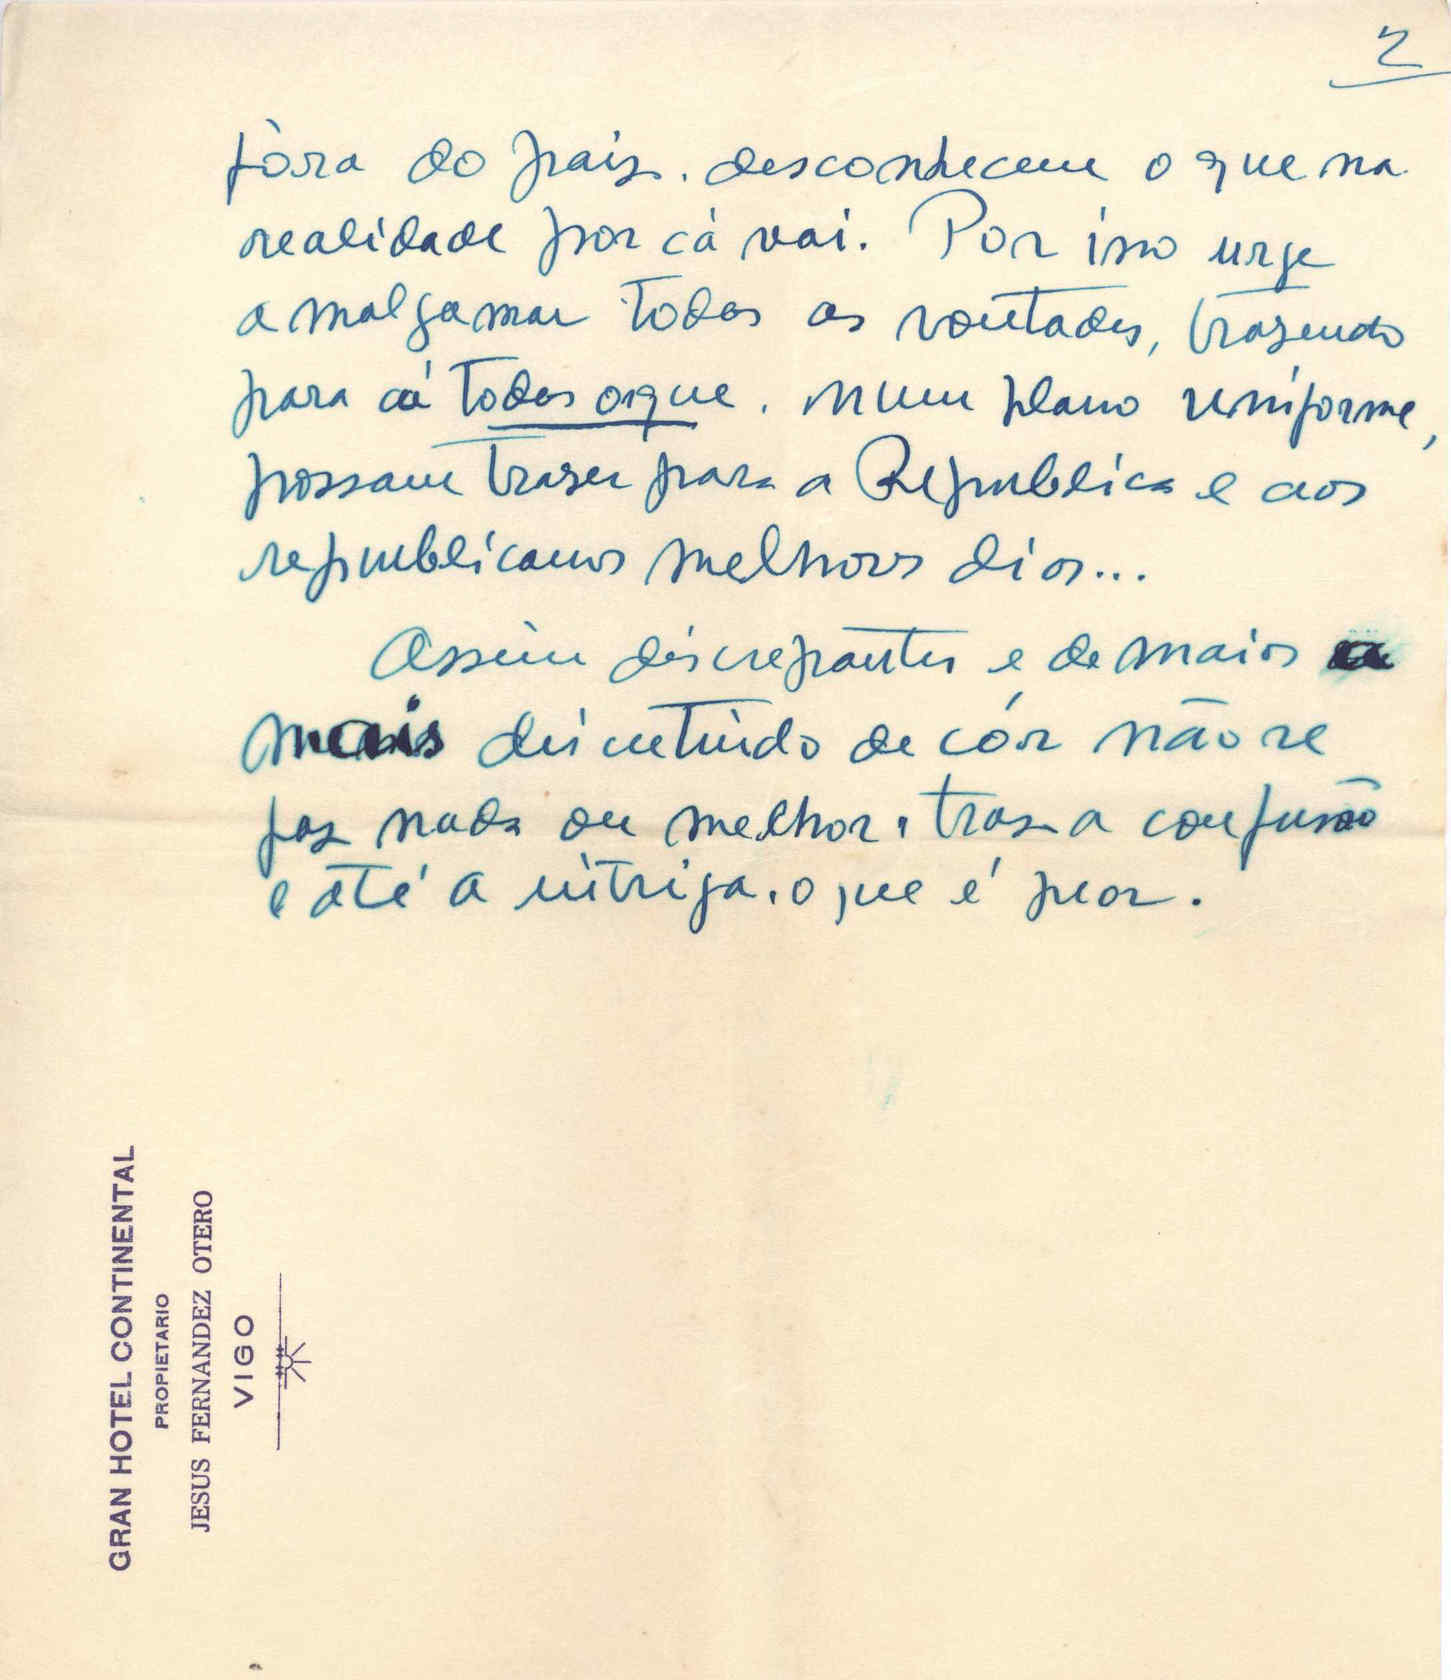 2
fóra do paiz, desconhecem o que na
realidade por cá vai. Por isso urge
amalgamar todas as vontades, trazendo
para cá todos os que, num plano uniforme,
possam trazer para a Republica e aos
republicanos melhores dias...
Assim discrepantes e de mais a
mais discutindo de cór não se
faz nada ou melhor, traz a confusão
e até a intriga, o que é peor.
GRAN HOTEL CONTINENTAL
PROPIETARIO
JESUS FERNANDEZ OTERO
VIGO